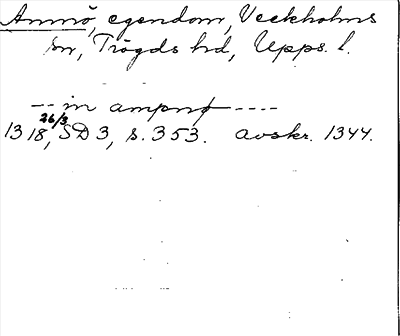 Ammö, egendom, Veckholms
sn, Trögds hd, Upps. l.
--- in ampnø ----
1318 26/3, SD 3, s. 353. avskr. 1344.